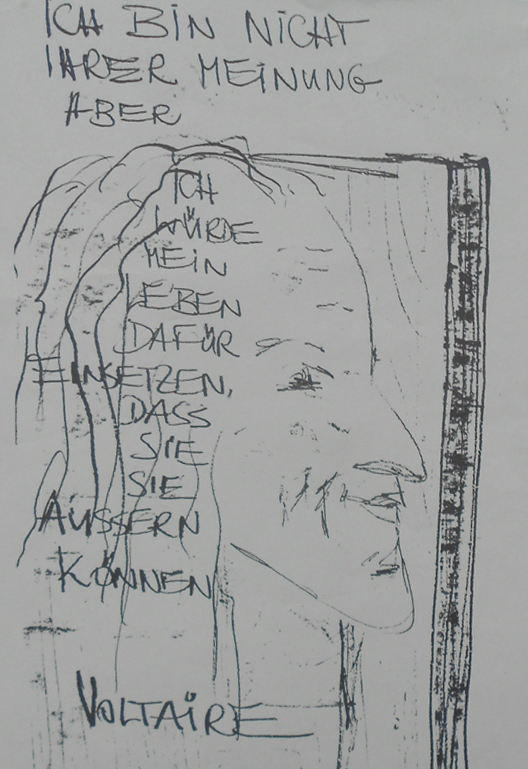 ICH BIN NICHT
IHRER MEINUNG
ABER
ICH
WÜRDE
MEIN
LEBEN
DAFÜR
EINSETZEN,
DASS
SIE
SIE
ÄUSSERN
KÖNNEN
VOLTAIRE